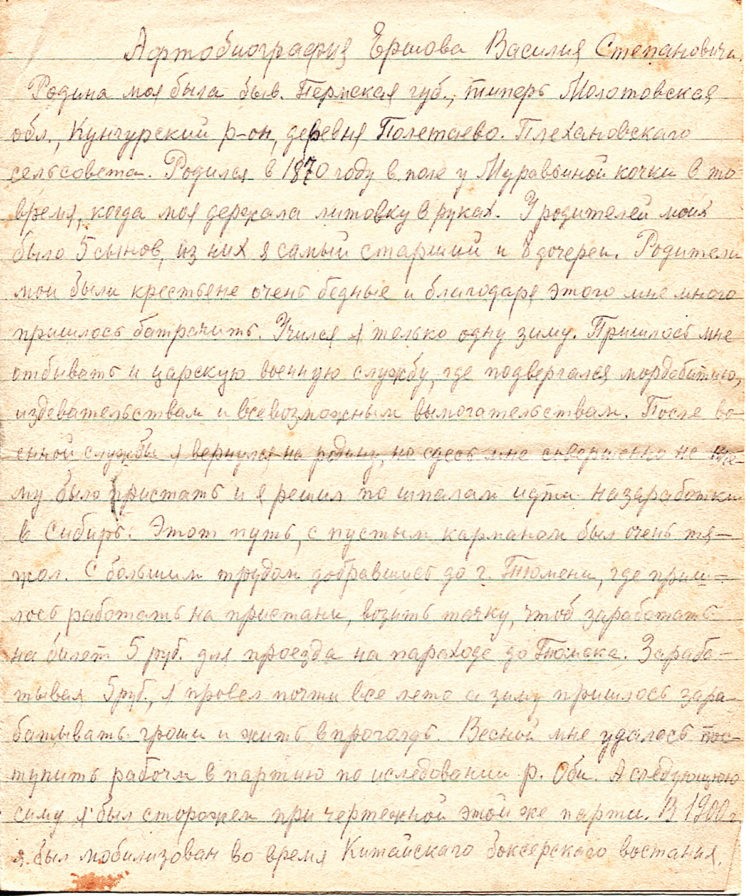 Афтобиография Ершова Василия Степановича.
Родина моя была быв. Пермская губ., типерь Молотовская
обл., Кунгурский р-он, деревня Полетаево. Плехановского
сельсовета. Родился в 1870 году в поле у Муравьиной кочки в то
время, когда моя держала литовку в руках. У родителей моих
было 5 сынов, из них я самый старший и 8 дочерей. Родители
мои были крестьяне очень бедные и благодаря этого мне много
пришлось батрачить. Учился я только одну зиму. Пришлось мне
отбывать и царскую военную службу, где подвергался мордобитию,
издевательствам и всевозможным вымогательствам. После во-
енной службы я вернулся на родину, но сдесь мне совершенно не к че-
му было пристать и я решил по шпалам идти на заработки
в Сибирь. Этот путь, с пустым карманом был очень тя-
жол. С большим трудом добравшись до г. Тюмени, где приш-
лось работать на пристани, возить тачку, чтоб заработать
на билет 5 руб. для проезда на параходе до Томска. Зараба-
тывая 5 руб., я провел почти все лето а зиму пришлось зара-
батывать гроши и жить впроголодь. Весной мне удалось пос-
тупить рабочм в партию по иследовании р. Оби. А следующюю
симу я был сторожем при чертежной этой же парти. В 1900 г
я был мобилизован во время Китайского боксерского востания.